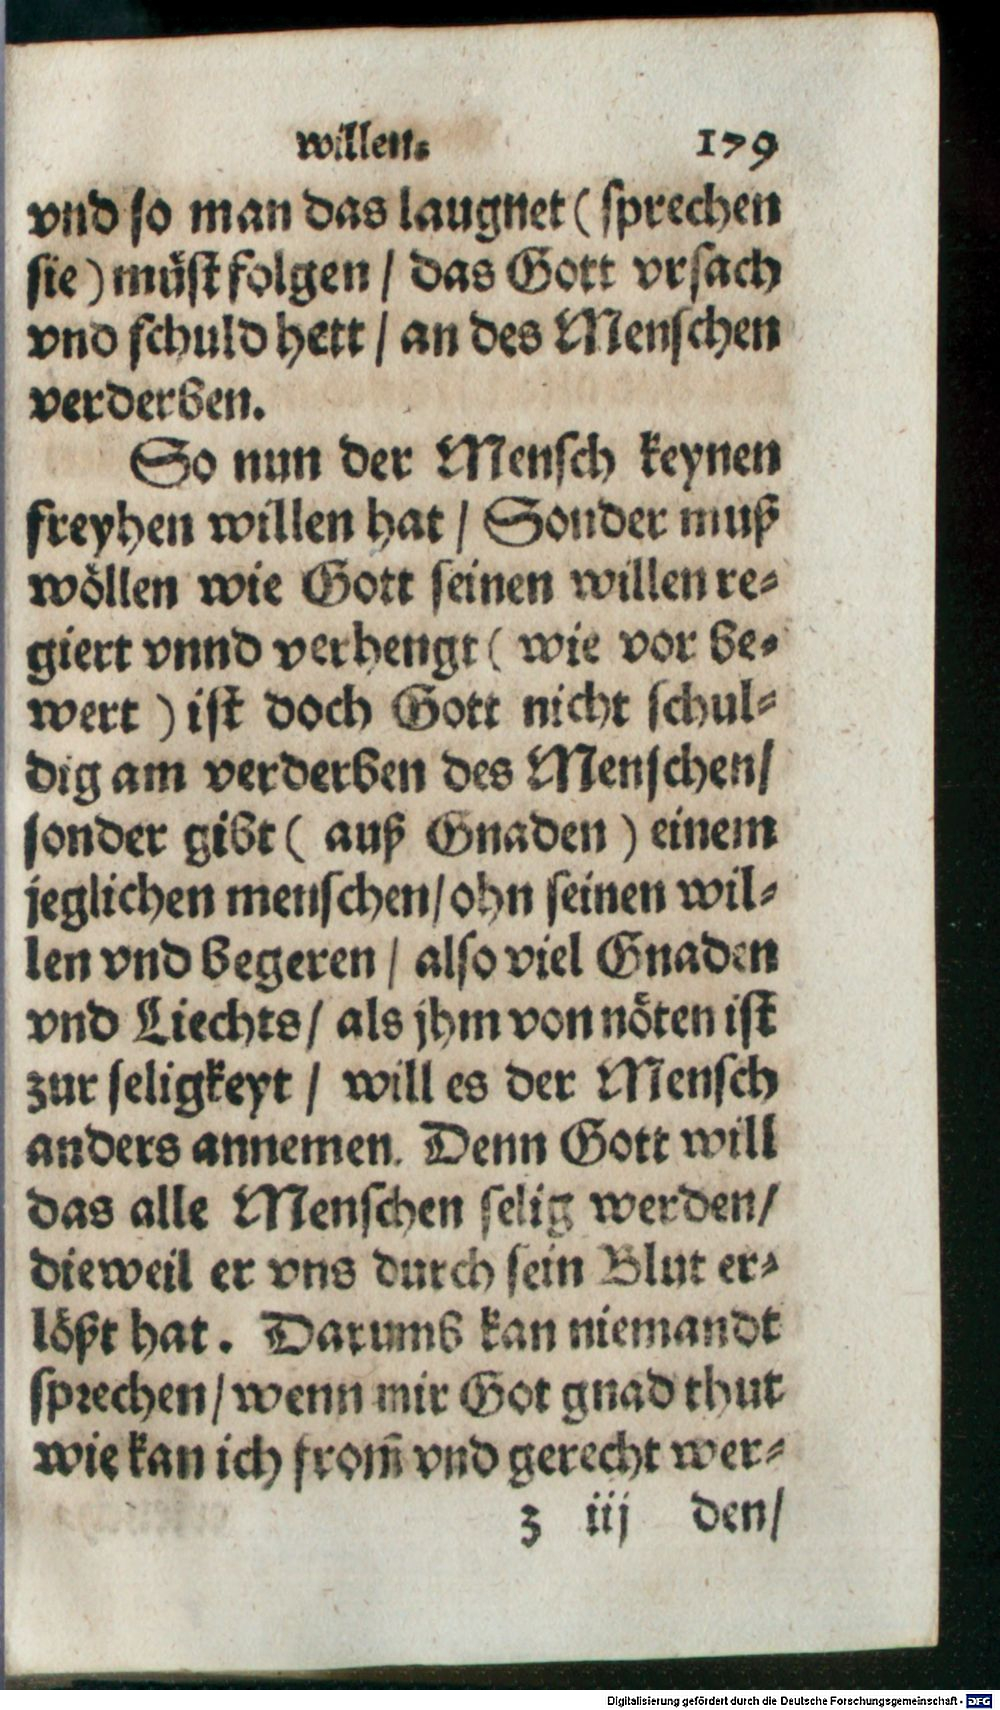 willen. 179
vnd so man das laugnet ( sprechen
sie ) müst folgen / das Gott vrsach
vnd schuld hett / an des Menschen
verderben.
So nun der Mensch keynen
freyhen willen hat / Sonder muß
wöllen wie Gott seinen willen re-
giert vnnd verhengt ( wie vor be-
wert ) ist doch Gott nicht schul-
dig am verderben des Menschen/
sonder gibt ( auß Gnaden ) einem
jeglichen menschen/ ohn seinen wil-
len vnd begeren / also viel Gnaden
vnd Liechts/ als jhm von nöten ist
zur seligkeyt / will es der Mensch
anders annemen. Denn Gott will
das alle Menschen selig werden/
dieweil er vns durch sein Blut er-
lößt hat. Darumb kan niemandt
sprechen/ wenn mir Got gnad thut
wie kan ich from̄ vnd gerecht wer-
z iij den/
Digitalisierung gefördert durch die Deutsche Forschungsgemeinschaft - DFG